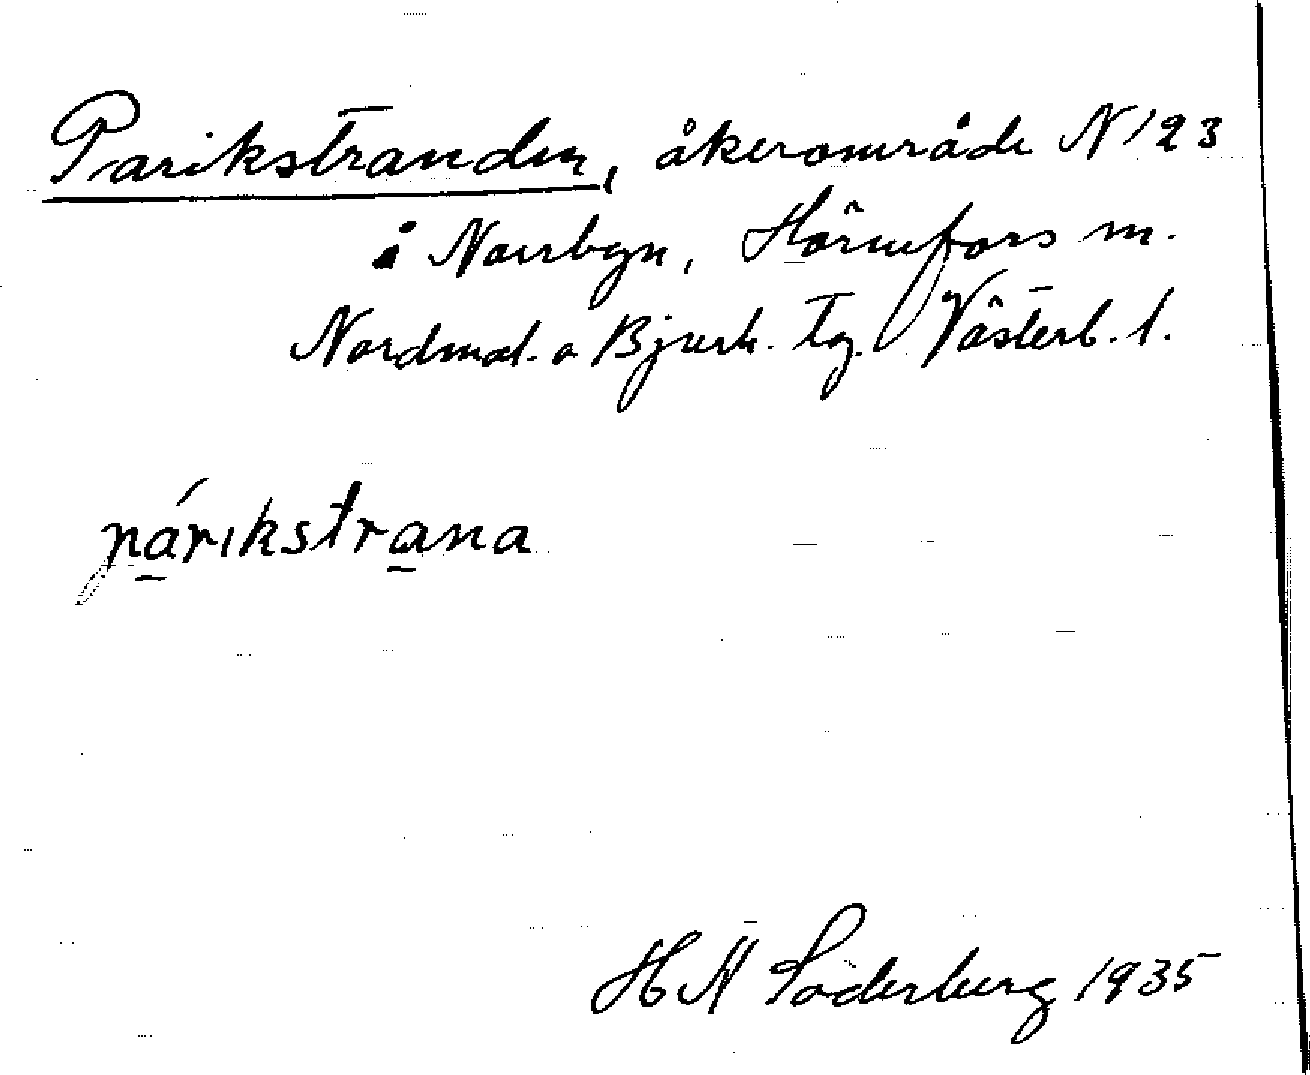 Parikstranden, åkerområde N 123
i Norrbyn, Hörnefors sn.
Nordmal. o Bjurh. tg. Västerb. l.
párikstrana
H N Söderberg 1935